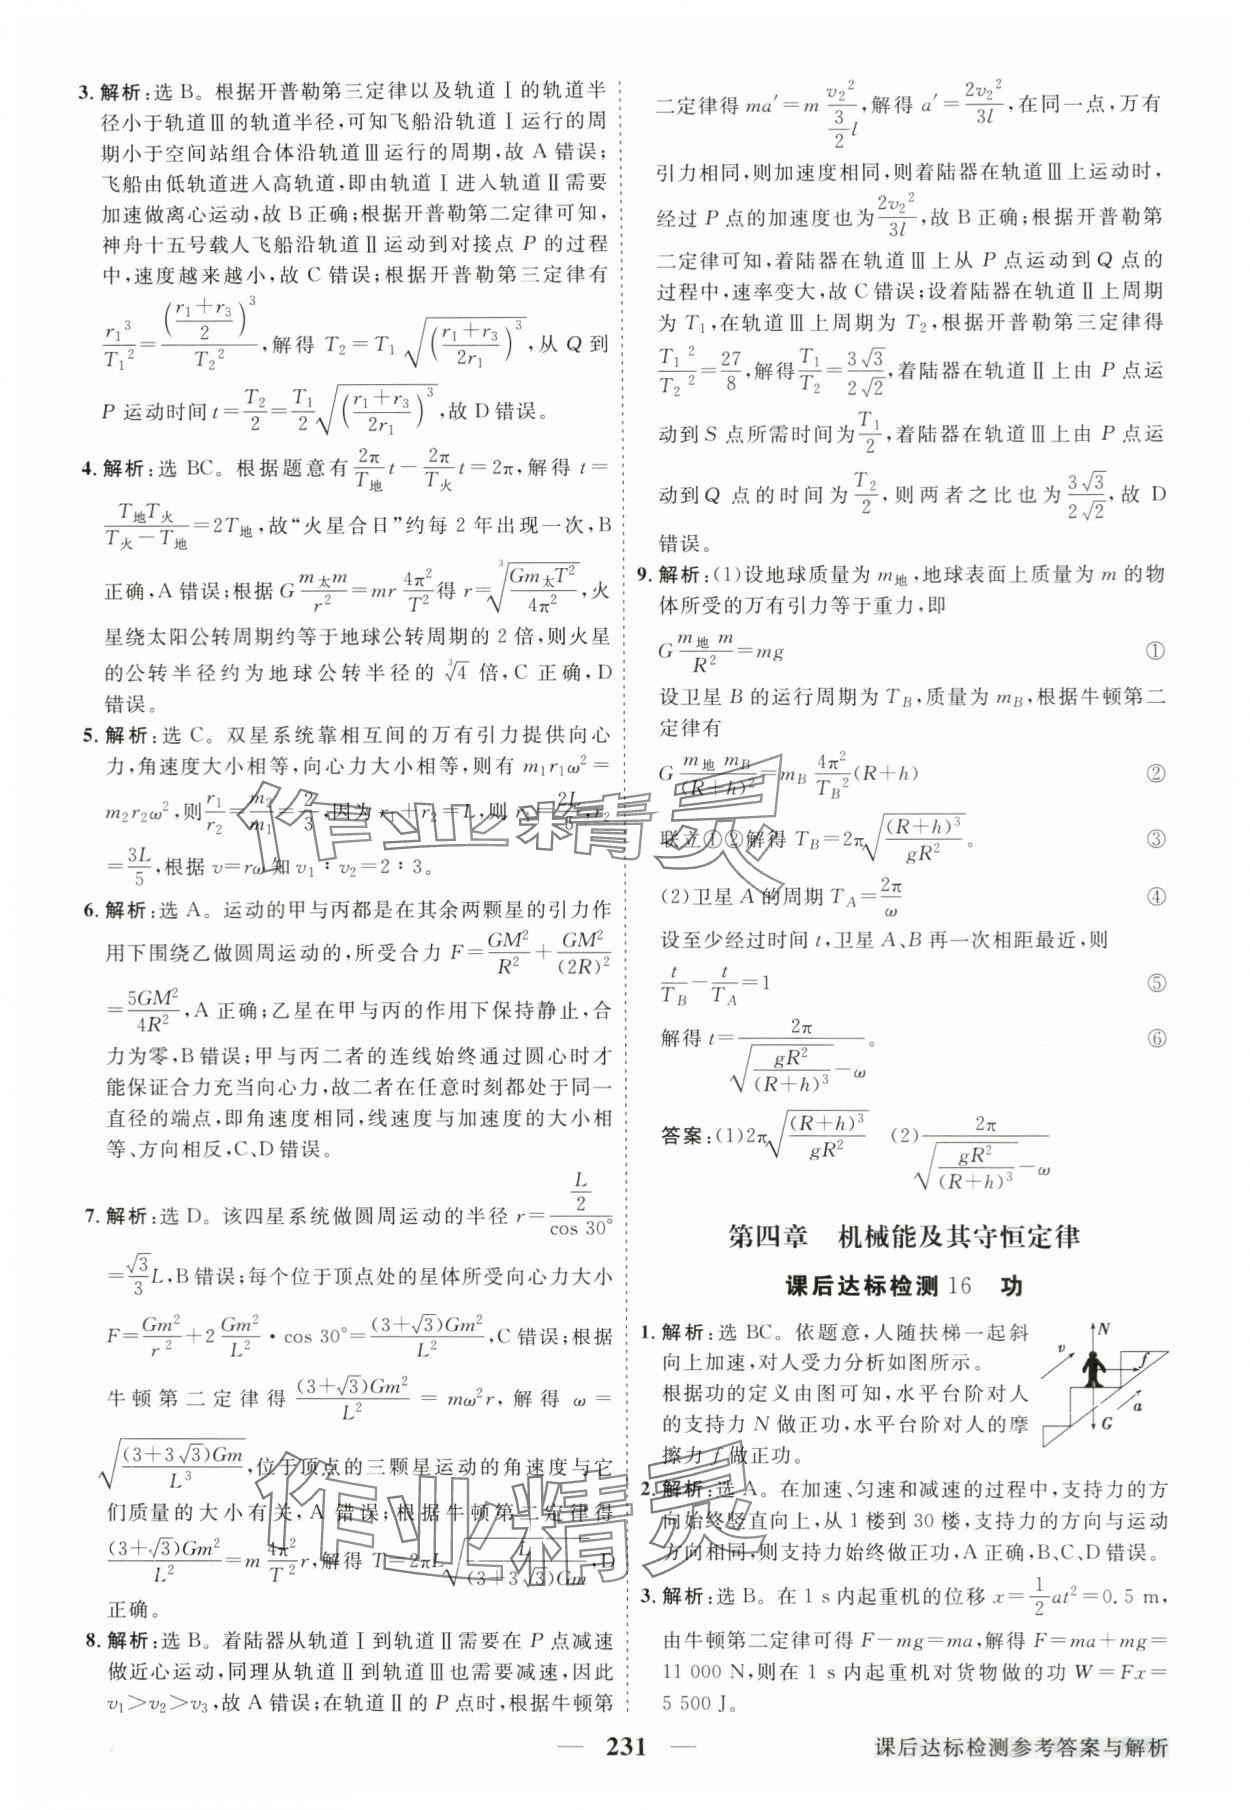 3. 解析:选 B。根据开普勒第三定律以及轨道Ⅰ的轨道半
径小于轨道Ⅲ的轨道半径,可知飞船沿轨道Ⅰ运行的周
期小于空间站组合体沿轨道Ⅲ运行的周期,故 A 错误;
飞船由低轨道进入高轨道,即由轨道Ⅰ进入轨道Ⅱ需要
加速做离心运动,故 B 正确;根据开普勒第二定律可知,
神舟十五号载人飞船沿轨道Ⅱ运动到对接点 P 的过程
中,速度越来越小,故 C 错误;根据开普勒第三定律有
$\frac{r_1^3}{T_1^2}=\frac{\left(\frac{r_1+r_3}{2}\right)^3}{T_2^2}$,解得 $T_2=T_1\sqrt{\left(\frac{r_1+r_3}{2r_1}\right)^3}$,从 Q 到
P 运动时间 $t=\frac{T_2}{2}=\frac{T_1}{2}\sqrt{\left(\frac{r_1+r_3}{2r_1}\right)^3}$,故 D 错误。
4. 解析:选 BC。根据题意有$\frac{2π}{T_地}t-\frac{2π}{T_火}t=2π$,解得 t=
$\frac{T_地T_火}{T_火-T_地}=2T_地$,故“火星合日”约每 2 年出现一次,B
正确,A 错误;根据 $G\frac{m_太m}{r^2}=mr\frac{4π^2}{T^2}$得 $r=\sqrt[3]{\frac{Gm_太T^2}{4π^2}}$,火
星绕太阳公转周期约等于地球公转周期的 2 倍,则火星
的公转半径约为地球公转半径的 $\sqrt[3]{4}$ 倍,C 正确,D
错误。
5. 解析:选 C。双星系统靠相互间的万有引力提供向心
力,角速度大小相等,向心力大小相等,则有 $m_1r_1ω^2=$
$m_2r_2ω^2$,则$\frac{r_1}{r_2}=\frac{m_2}{m_1}=\frac{2}{3}$,因为 $r_1+r_2=L$,则 $r_1=\frac{2L}{5}$,$r_2$
$=\frac{3L}{5}$,根据 $v=rω$知 $v_1:v_2=2:3$。
6. 解析:选 A。运动的甲与丙都是在其余两颗星的引力作
用下围绕乙做圆周运动的,所受合力 $F=\frac{GM^2}{R^2}+\frac{GM^2}{(2R)^2}$
$=\frac{5GM^2}{4R^2}$,A 正确;乙星在甲与丙的作用下保持静止,合
力为零,B 错误;甲与丙二者的连线始终通过圆心时才
能保证合力充当向心力,故二者在任意时刻都处于同一
直径的端点,即角速度相同,线速度与加速度的大小相
等、方向相反,C、D 错误。
7. 解析:选 D。该四星系统做圆周运动的半径 $r=\frac{\frac{L}{2}}{\cos 30°}$
$=\frac{\sqrt{3}}{3}L$,B 错误;每个位于顶点处的星体所受向心力大小
$F=\frac{Gm^2}{r^2}+2\frac{Gm^2}{L^2}·\cos 30°=\frac{(3+\sqrt{3})Gm^2}{L^2}$,C 错误;根据
牛顿第二定律得$\frac{(3+\sqrt{3})Gm^2}{L^2}=mω^2r$,解得 ω=
$\sqrt{\frac{(3+3\sqrt{3})Gm}{L^3}}$,位于顶点的三颗星运动的角速度与它
们质量的大小有关,A 错误;根据牛顿第二定律得
$\frac{(3+\sqrt{3})Gm^2}{L^2}=m\frac{4π^2}{T^2}r$,解得 $T=2πL\sqrt{\frac{L}{(3+3\sqrt{3})Gm}}$,D
正确。
8. 解析:选 B。着陆器从轨道Ⅰ到轨道Ⅱ需要在 P 点减速
做近心运动,同理从轨道Ⅱ到轨道Ⅲ也需要减速,因此
$v_1>v_2>v_3$,故 A 错误;在轨道Ⅱ的 P 点时,根据牛顿第
二定律得 $ma'=m\frac{v_2^2}{\frac{3}{2}l}$,解得 $a'=\frac{2v_2^2}{3l}$,在同一点,万有
引力相同,则加速度相同,则着陆器在轨道Ⅲ上运动时,
经过 P 点的加速度也为$\frac{2v_2^2}{3l}$,故 B 正确;根据开普勒第
二定律可知,着陆器在轨道Ⅲ上从 P 点运动到 Q 点的
过程中,速率变大,故 C 错误;设着陆器在轨道Ⅱ上周期
为 $T_1$,在轨道Ⅲ上周期为 $T_2$,根据开普勒第三定律得
$\frac{T_1^2}{T_2^2}=\frac{27}{8}$,解得$\frac{T_1}{T_2}=\frac{3\sqrt{3}}{2\sqrt{2}}$,着陆器在轨道Ⅱ上由 P 点运
动到 S 点所需时间为$\frac{T_1}{2}$,着陆器在轨道Ⅲ上由 P 点运
动到 Q 点的时间为$\frac{T_2}{2}$,则两者之比也为$\frac{3\sqrt{3}}{2\sqrt{2}}$,故 D
错误。
9. 解析:(1)设地球质量为 $m_地$,地球表面上质量为 m 的物
体所受的万有引力等于重力,即
$G\frac{m_地m}{R^2}=mg$ ①
设卫星 B 的运行周期为 $T_B$,质量为 $m_B$,根据牛顿第二
定律有
$G\frac{m_地m_B}{(R+h)^2}=m_B\frac{4π^2}{T_B^2}(R+h)$ ②
联立①②解得 $T_B=2π\sqrt{\frac{(R+h)^3}{gR^2}}$。 ③
(2)卫星 A 的周期 $T_A=\frac{2π}{ω}$ ④
设至少经过时间 t,卫星 A、B 再一次相距最近,则
$\frac{t}{T_B}-\frac{t}{T_A}=1$ ⑤
解得 $t=\frac{2π}{\sqrt{\frac{gR^2}{(R+h)^3}}-ω}$。 ⑥
答案:(1)$2π\sqrt{\frac{(R+h)^3}{gR^2}}$ (2)$\frac{2π}{\sqrt{\frac{gR^2}{(R+h)^3}}-ω}$
第四章 机械能及其守恒定律
课后达标检测 16 功
1. 解析:选 BC。依题意,人随扶梯一起斜
向上加速,对人受力分析如图所示。
根据功的定义由图可知,水平台阶对人
的支持力 N 做正功,水平台阶对人的摩
擦力 f 做正功。
N
v
f
a
G
2. 解析:选 A。在加速、匀速和减速的过程中,支持力的方
向始终竖直向上,从 1 楼到 30 楼,支持力的方向与运动
方向相同,则支持力始终做正功,A 正确,B、C、D 错误。
3. 解析:选 B。在 1 s 内起重机的位移 $x=\frac{1}{2}at^2=0.5$ m,
由牛顿第二定律可得 F－mg=ma,解得 F=ma+mg=
11 000 N,则在 1 s 内起重机对货物做的功 W=Fx=
5 500 J。
作业精灵
作业精灵
231
课后达标检测参考答案与解析